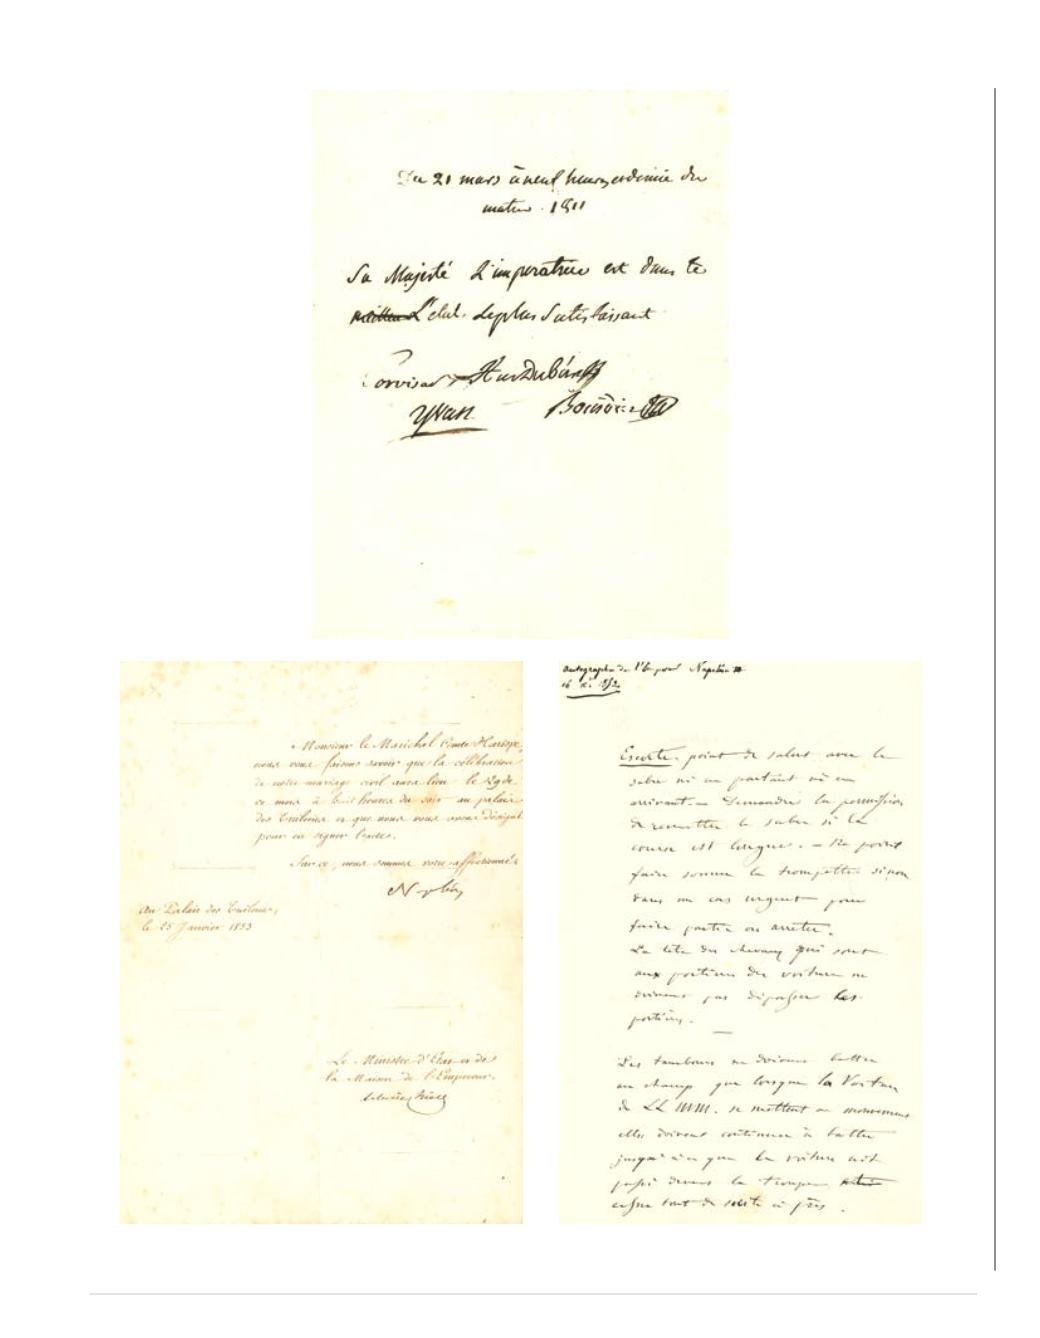 Du 21 mars à neuf heures et demie du
matin. 1811
Sa Majesté L'imperatrice est dans le
meilleur L'etat. le plus Satisfaisant
Corvisart AntDubois
Yvan Bourdier
Monsieur le Maréchal Comte Harispe,
nous vous faisons savoir que la célébration
de notre mariage civil aura lieu le 29 de
ce mois à huit heures du soir au palais
des Tuileries et que nous vous avons désigné
pour en signer l'acte.
Sur ce, nous sommes votre affectionné.
Napoléon
Au Palais des Tuileries,
le 25 Janvier 1853
Le Ministre d'Etat et de
la Maison de l'Empereur.
Achille Fould
autographe de l'Empereur Napoléon III
1853.
Escorte. point de salut avec le
sabre ni en partant ni en
arrivant — Demander la permission
de remettre le sabre si la
course est longue. — Ne point
faire sonner la trompette sinon
dans un cas urgent pour
faire partir ou arrêter.
La tête des chevaux qui sont
aux portières des voitures ne
doivent pas dépasser les
portières.
Les tambours ne doivent battre
au champ que lorsque la Voiture
de LL MM. se mettent en mouvement
elles doivent continuer à battre
jusqu'à ce que la voiture ait
passé devant la troupe
cesser tout de suite après.